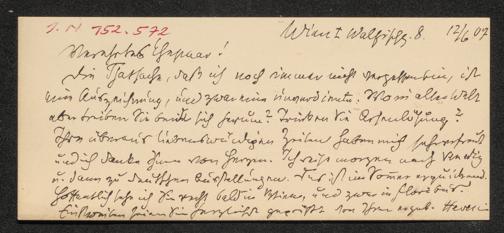 J.N 152.572
Wien I Walfischg. 8. 12/6 07
Verehrtes Ehepaar!
Die Tatsache, daß ich noch immer nicht vergessen bin, ist
eine Auszeichnung, und zwar eine unverdiente. Wo in aller Welt
aber treiben Sie beide sich herum? Trinken Sie
Ihre überaus liebenswürdigen Zeilen haben mich sehr erfreut
und ich danke Ihnen von Herzen. Ich reise morgen nach Venedig
u. dann zu deutschen Ausstellungen. Das ist im Sommer erquickend.
Hoffentlich sehe ich Sie recht bald in Wien, und zwar in
seien Sie herzlichst gegrüßt von Ihrem ergeb. Hevesi